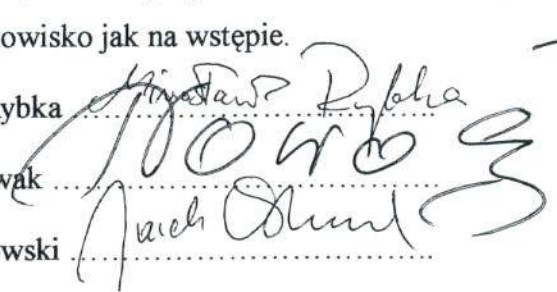 owisko jak na wstępie.
ybka Mirosław Rybka
wak
wski Jacek